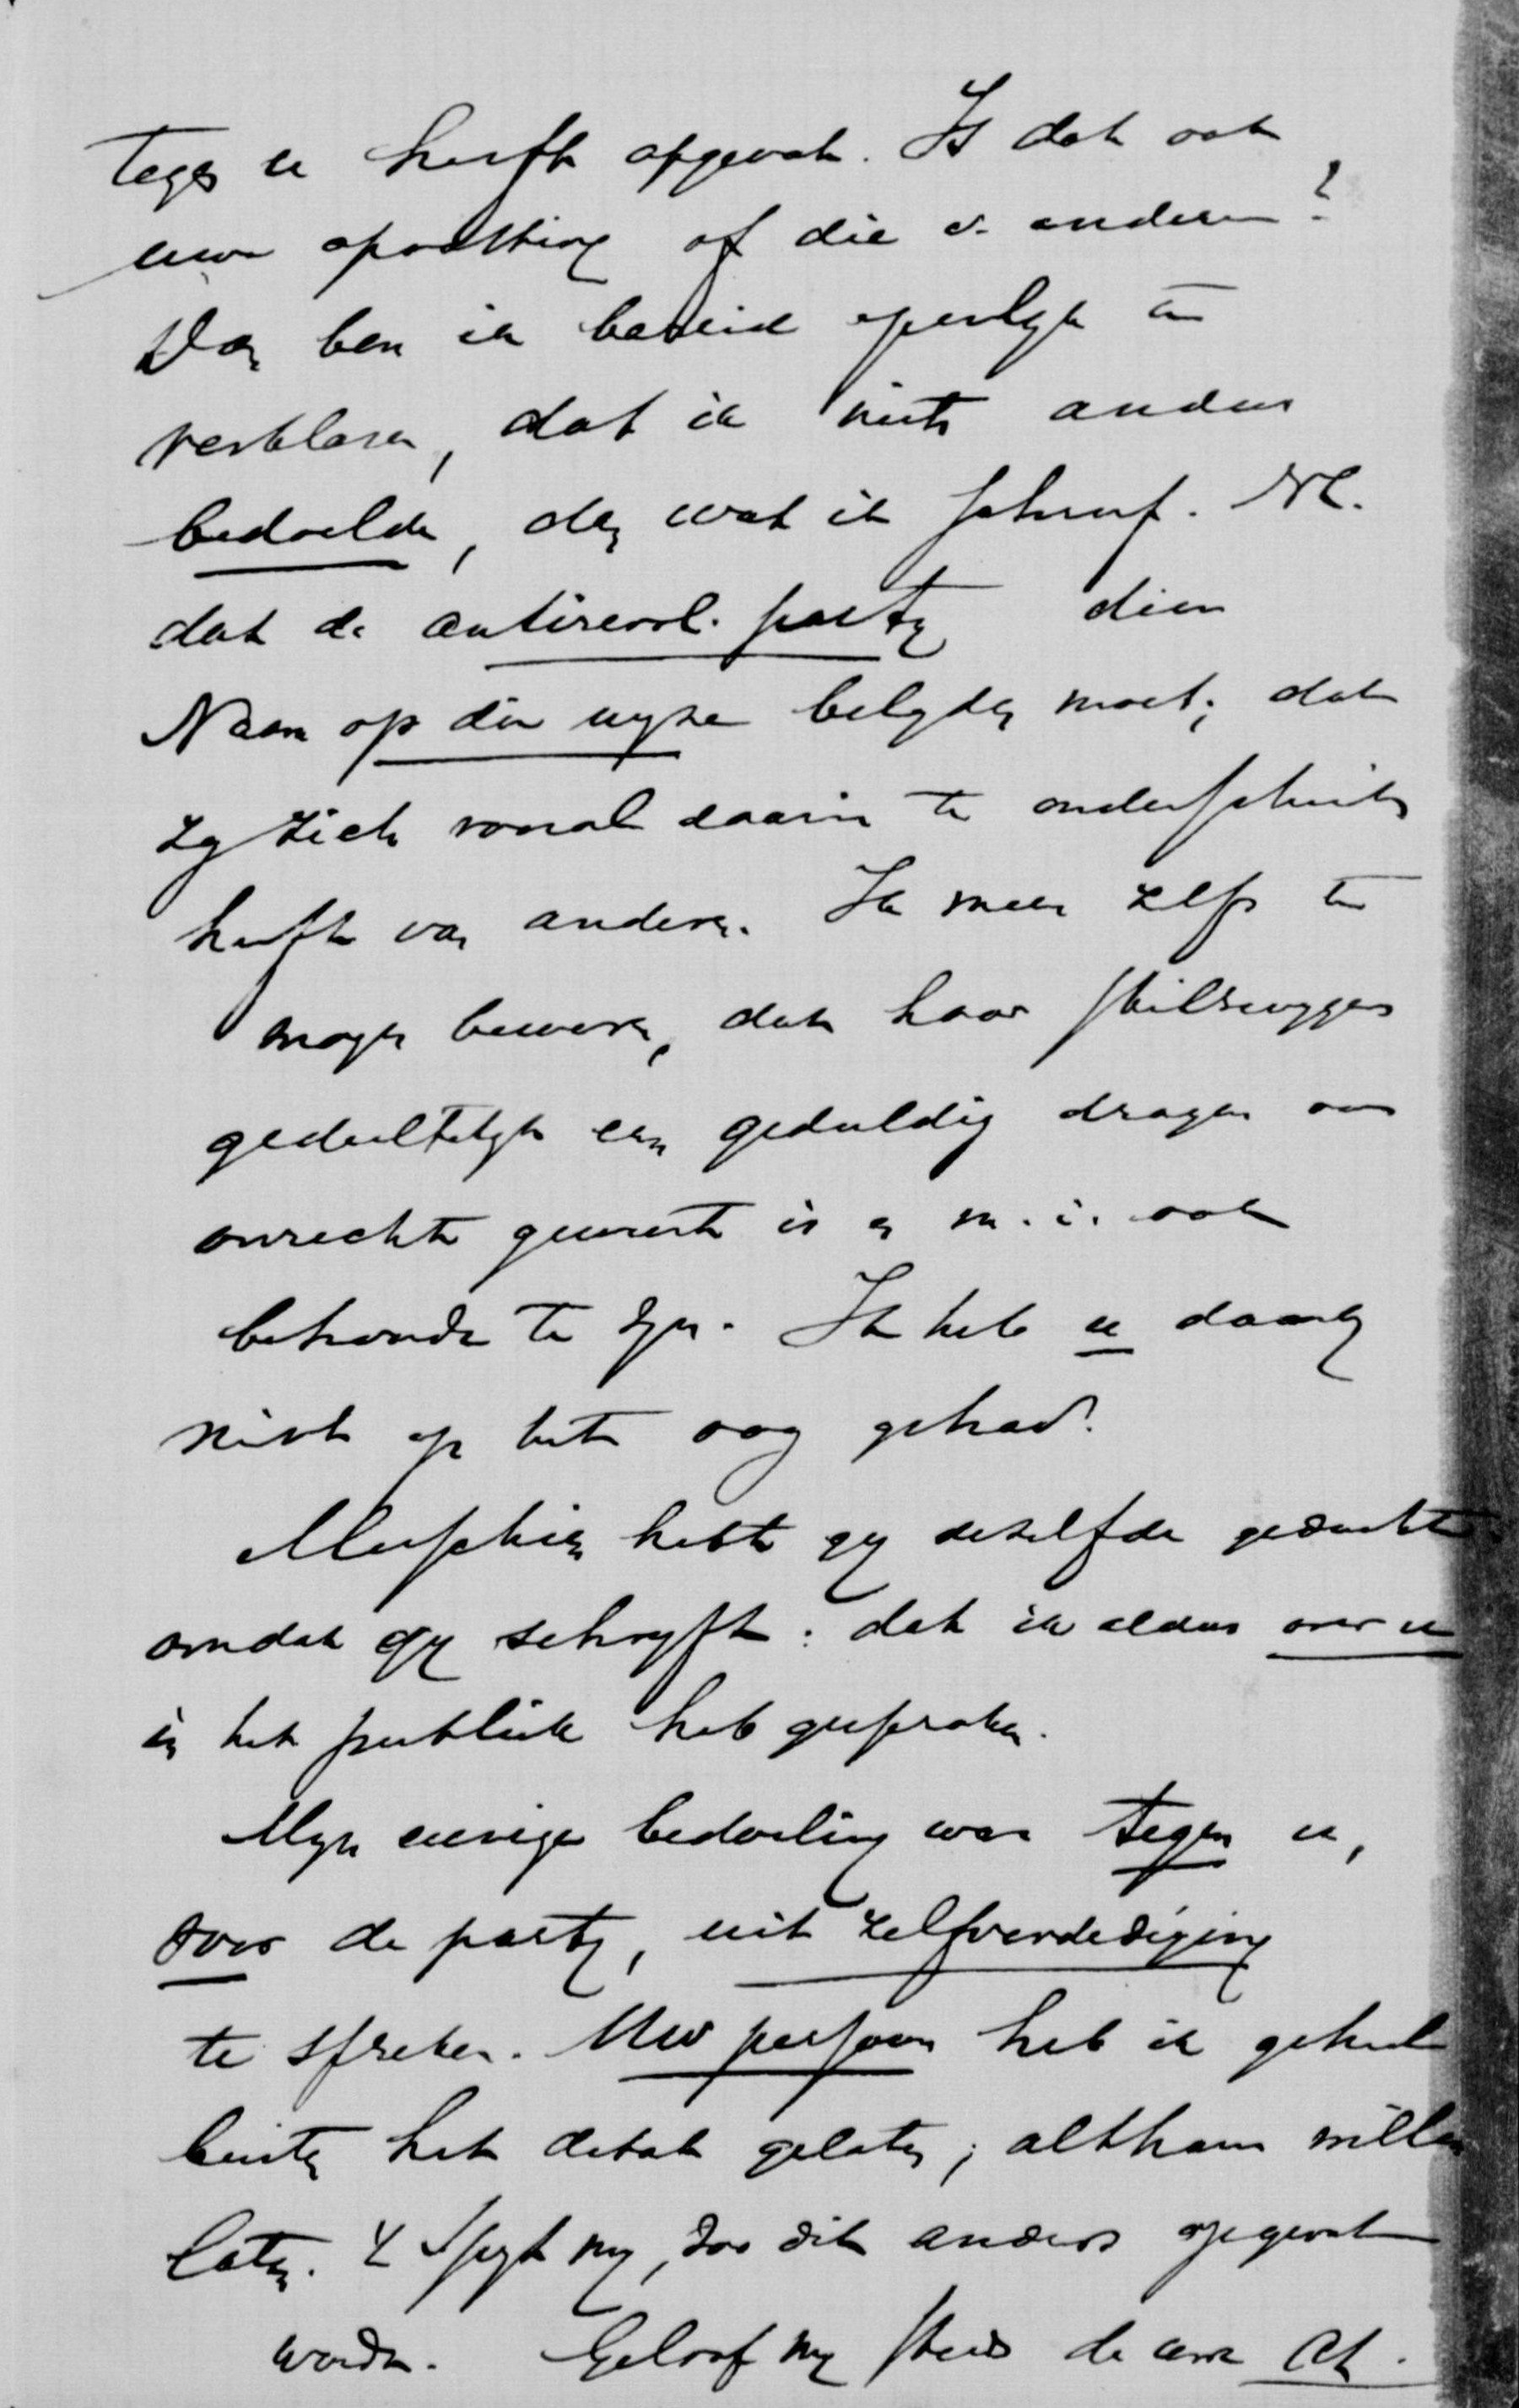 tegen u heeft opgevat. Is dat ook
uwe opvatting of die v. anderen?
Dan ben ik bereid openlyk te
verklaren, dat ik niets anders
bedoelde, dan wat ik schreef. Nl.
dat de antirevol. party dien
Naam op die wyze belyden moet; dat
zy zich vooral daarin te onderscheiden
heeft van anderen. Ik meen zelfs te
mogen beweren, dat haar stilzwygen
gedeeltelyk een geduldig dragen van
onrecht geweest is en m.i. ook
behoorde te zyn. Ik heb u daarby
niet op het oog gehad.
Misschien hebt gy dezelfde gedachte
omdat gy schryft: dat ik aldus over u
in het publiek heb gesproken.
Myn eenige bedoeling was tegen u,
voor de party, uit zelfverdediging
te spreken. Uw persoon heb ik geheel
buiten het debat gelaten; althans willen
laten. 't Spyt my, zoo dit anders opgevat
worde. Geloof my steeds de uwe At.